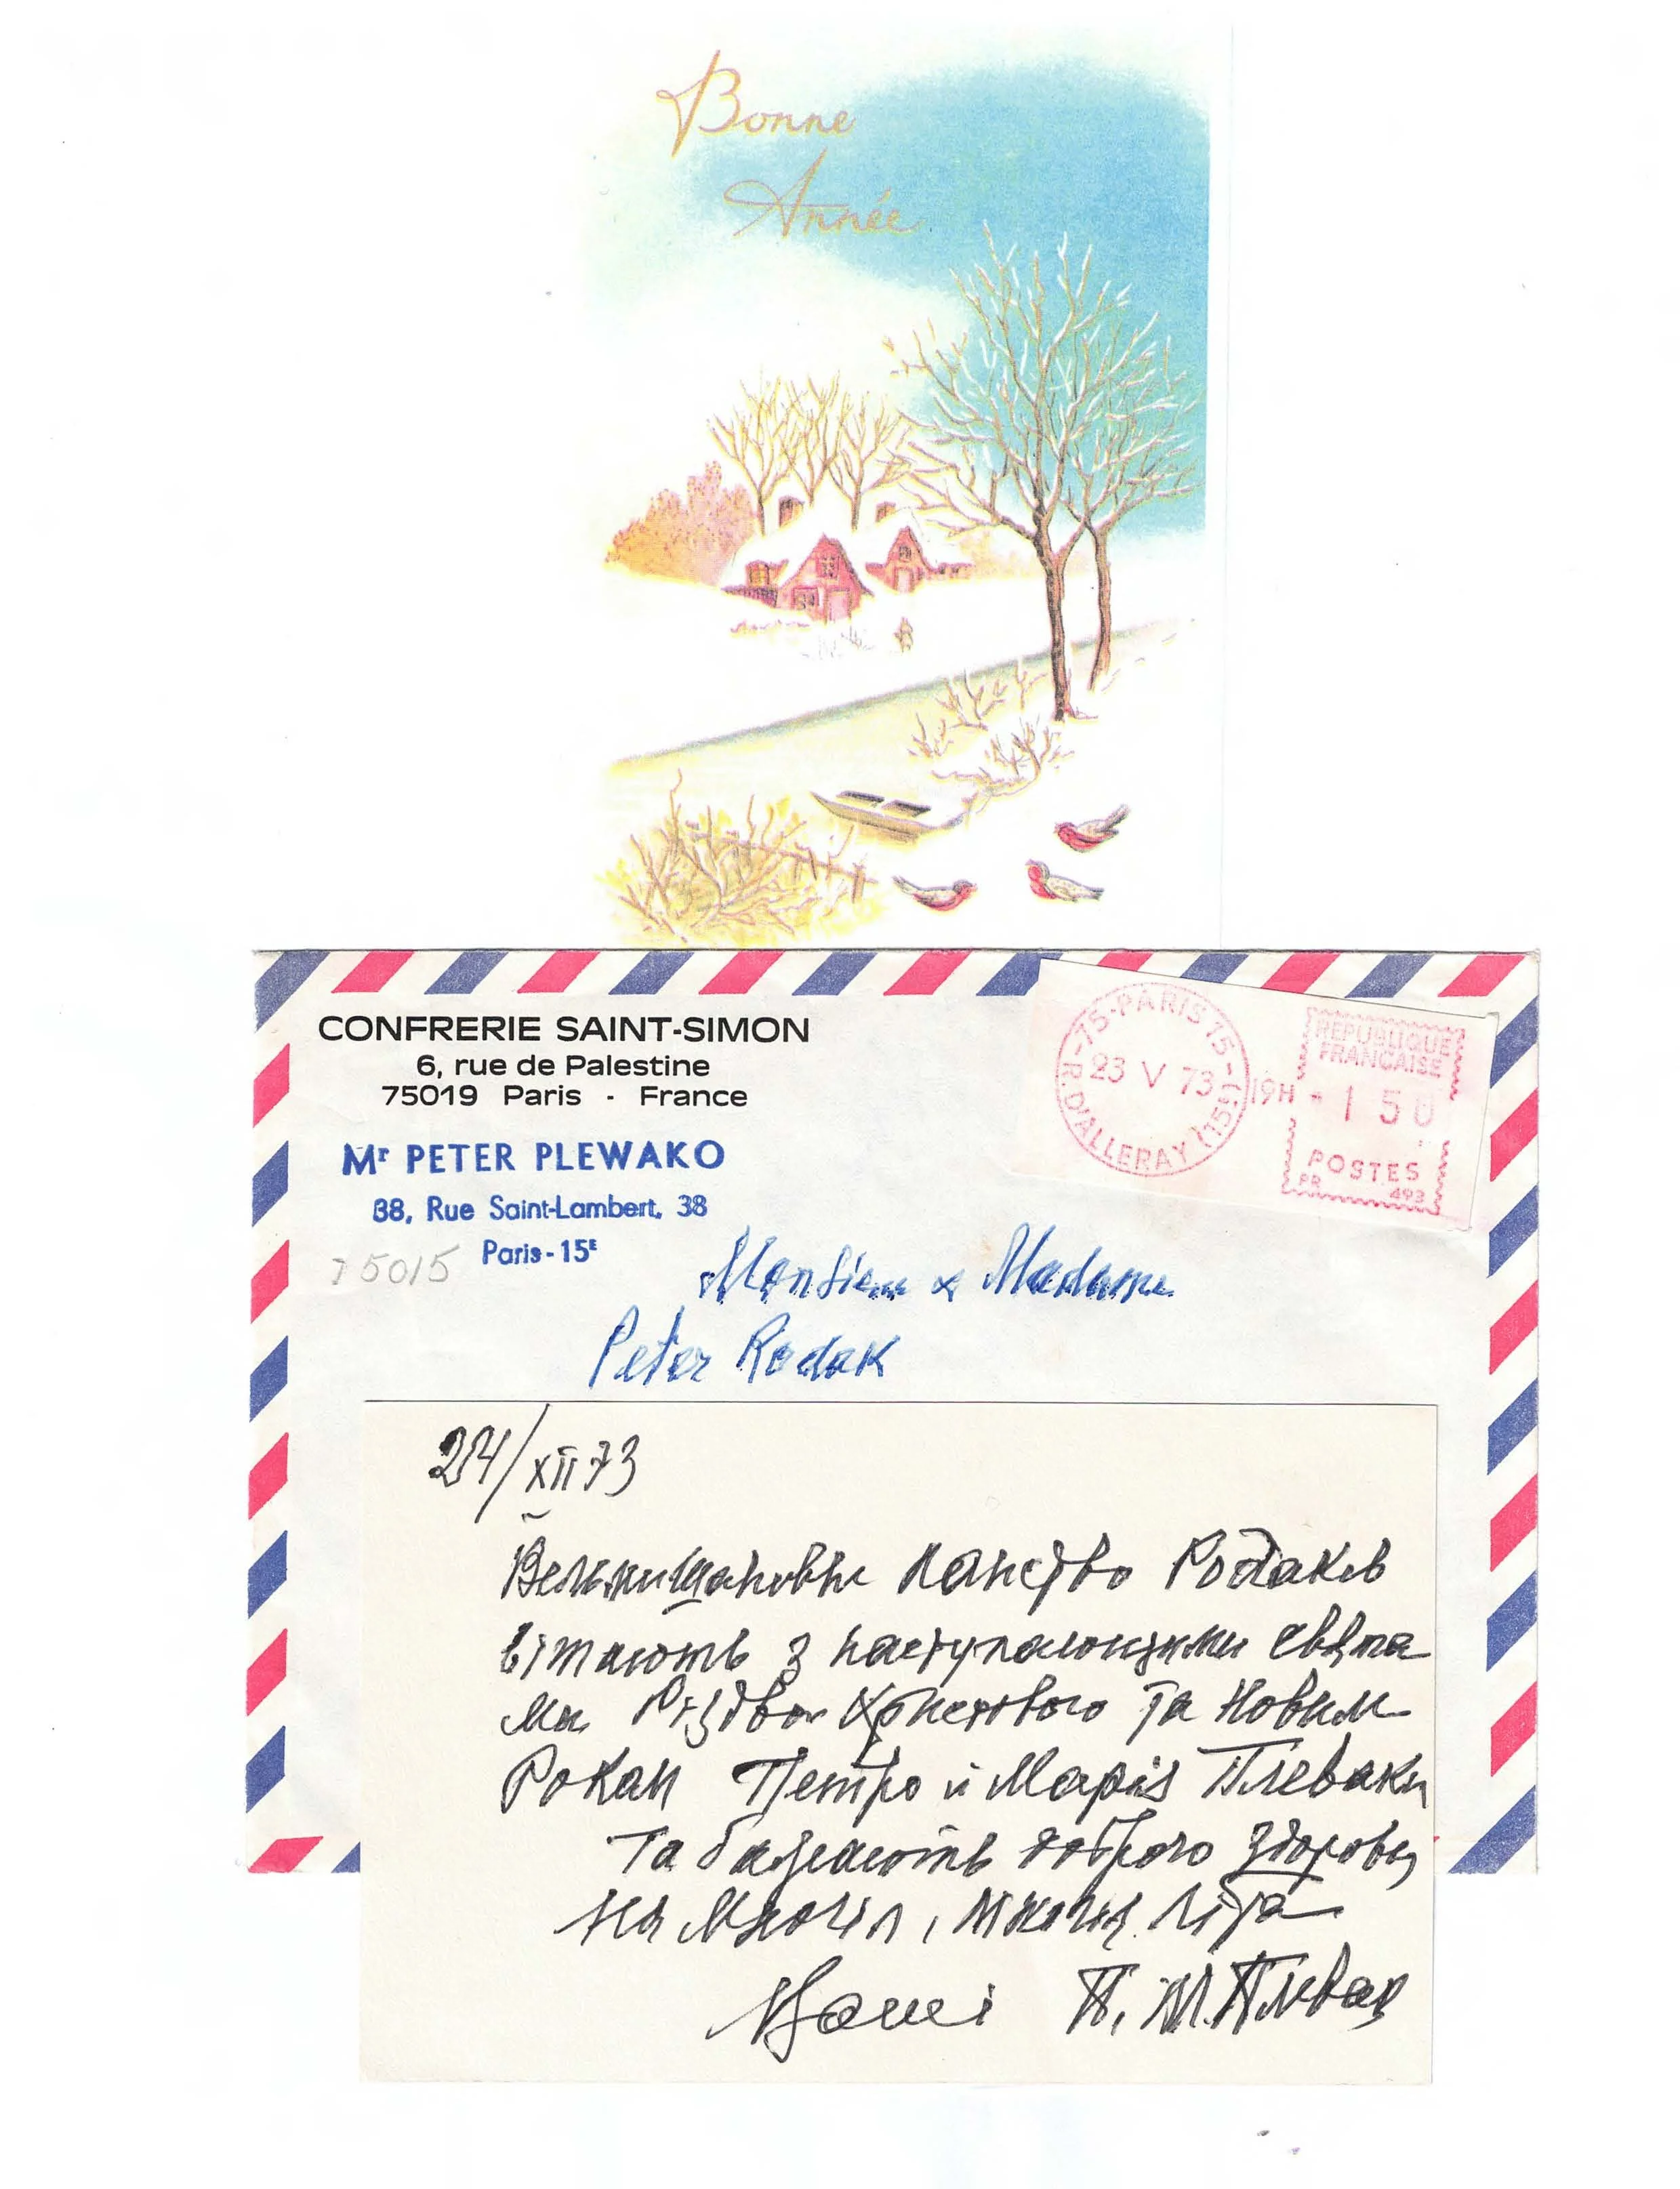 Bonne
Année
CONFRERIE SAINT-SIMON
6, rue de Palestine
75019 Paris - France
Mr PETER PLEWAKO
38, Rue Saint-Lambert, 38
Paris-15E
75015
75-PARIS 15-R.D'ALLERAY (15e)
23 V 73
19H
REPUBLIQUE
FRANCAISE
-150
POSTES
PR 493
Monsieur & Madame
Peter Rodak
24/XII 73
Вельмишановне Панство Родаків
вітають з наступаючими свята
ми Різдва Христового та Новим
Роком Петро й Марія Плеваки
та бажають доброго здоровя
на Многія, многія літа
Ваші П. М. Плеваки